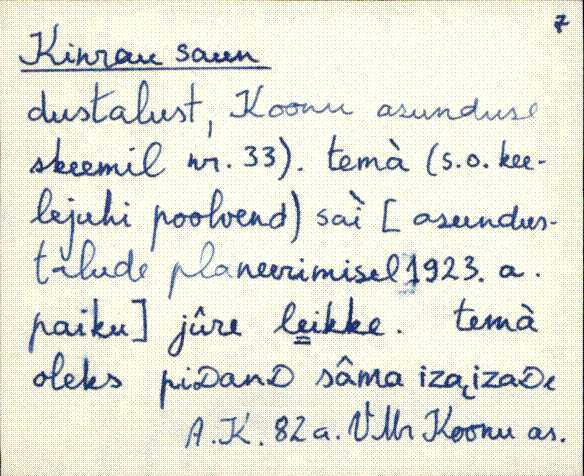 7
Kinrau saun
dustalust, Koonu asunduse
skeemil nr. 33). temà (s.o. kee-
lejuhi poolvend) saì [asundus-
talude planeerimisel 1923. a.
paiku] jûre leikke. temà
oleks piDanD sâma iząizaDe
A.K. 82 a. VMr Koonu as.